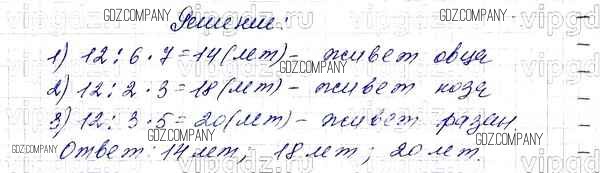 Решение:
1) 12 : 6 · 7 = 14 (лет) - живет овца
2) 12 : 2 · 3 = 18 (лет) - живет коза
3) 12 : 3 · 5 = 20 (лет) - живет фазан.
Ответ: 14 лет; 18 лет; 20 лет.
GDZ.COMPANY
GDZ.COMPANY
GDZ.COMPANY
GDZ.COMPANY
GDZ.COMPANY
GDZ.COMPANY
GDZ.COMPANY